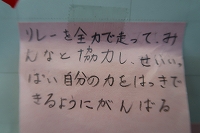 リレーを全力で走って、み
んなと協力し、せいいっ
ぱい自分の力をはっきで
きるようにがんばる